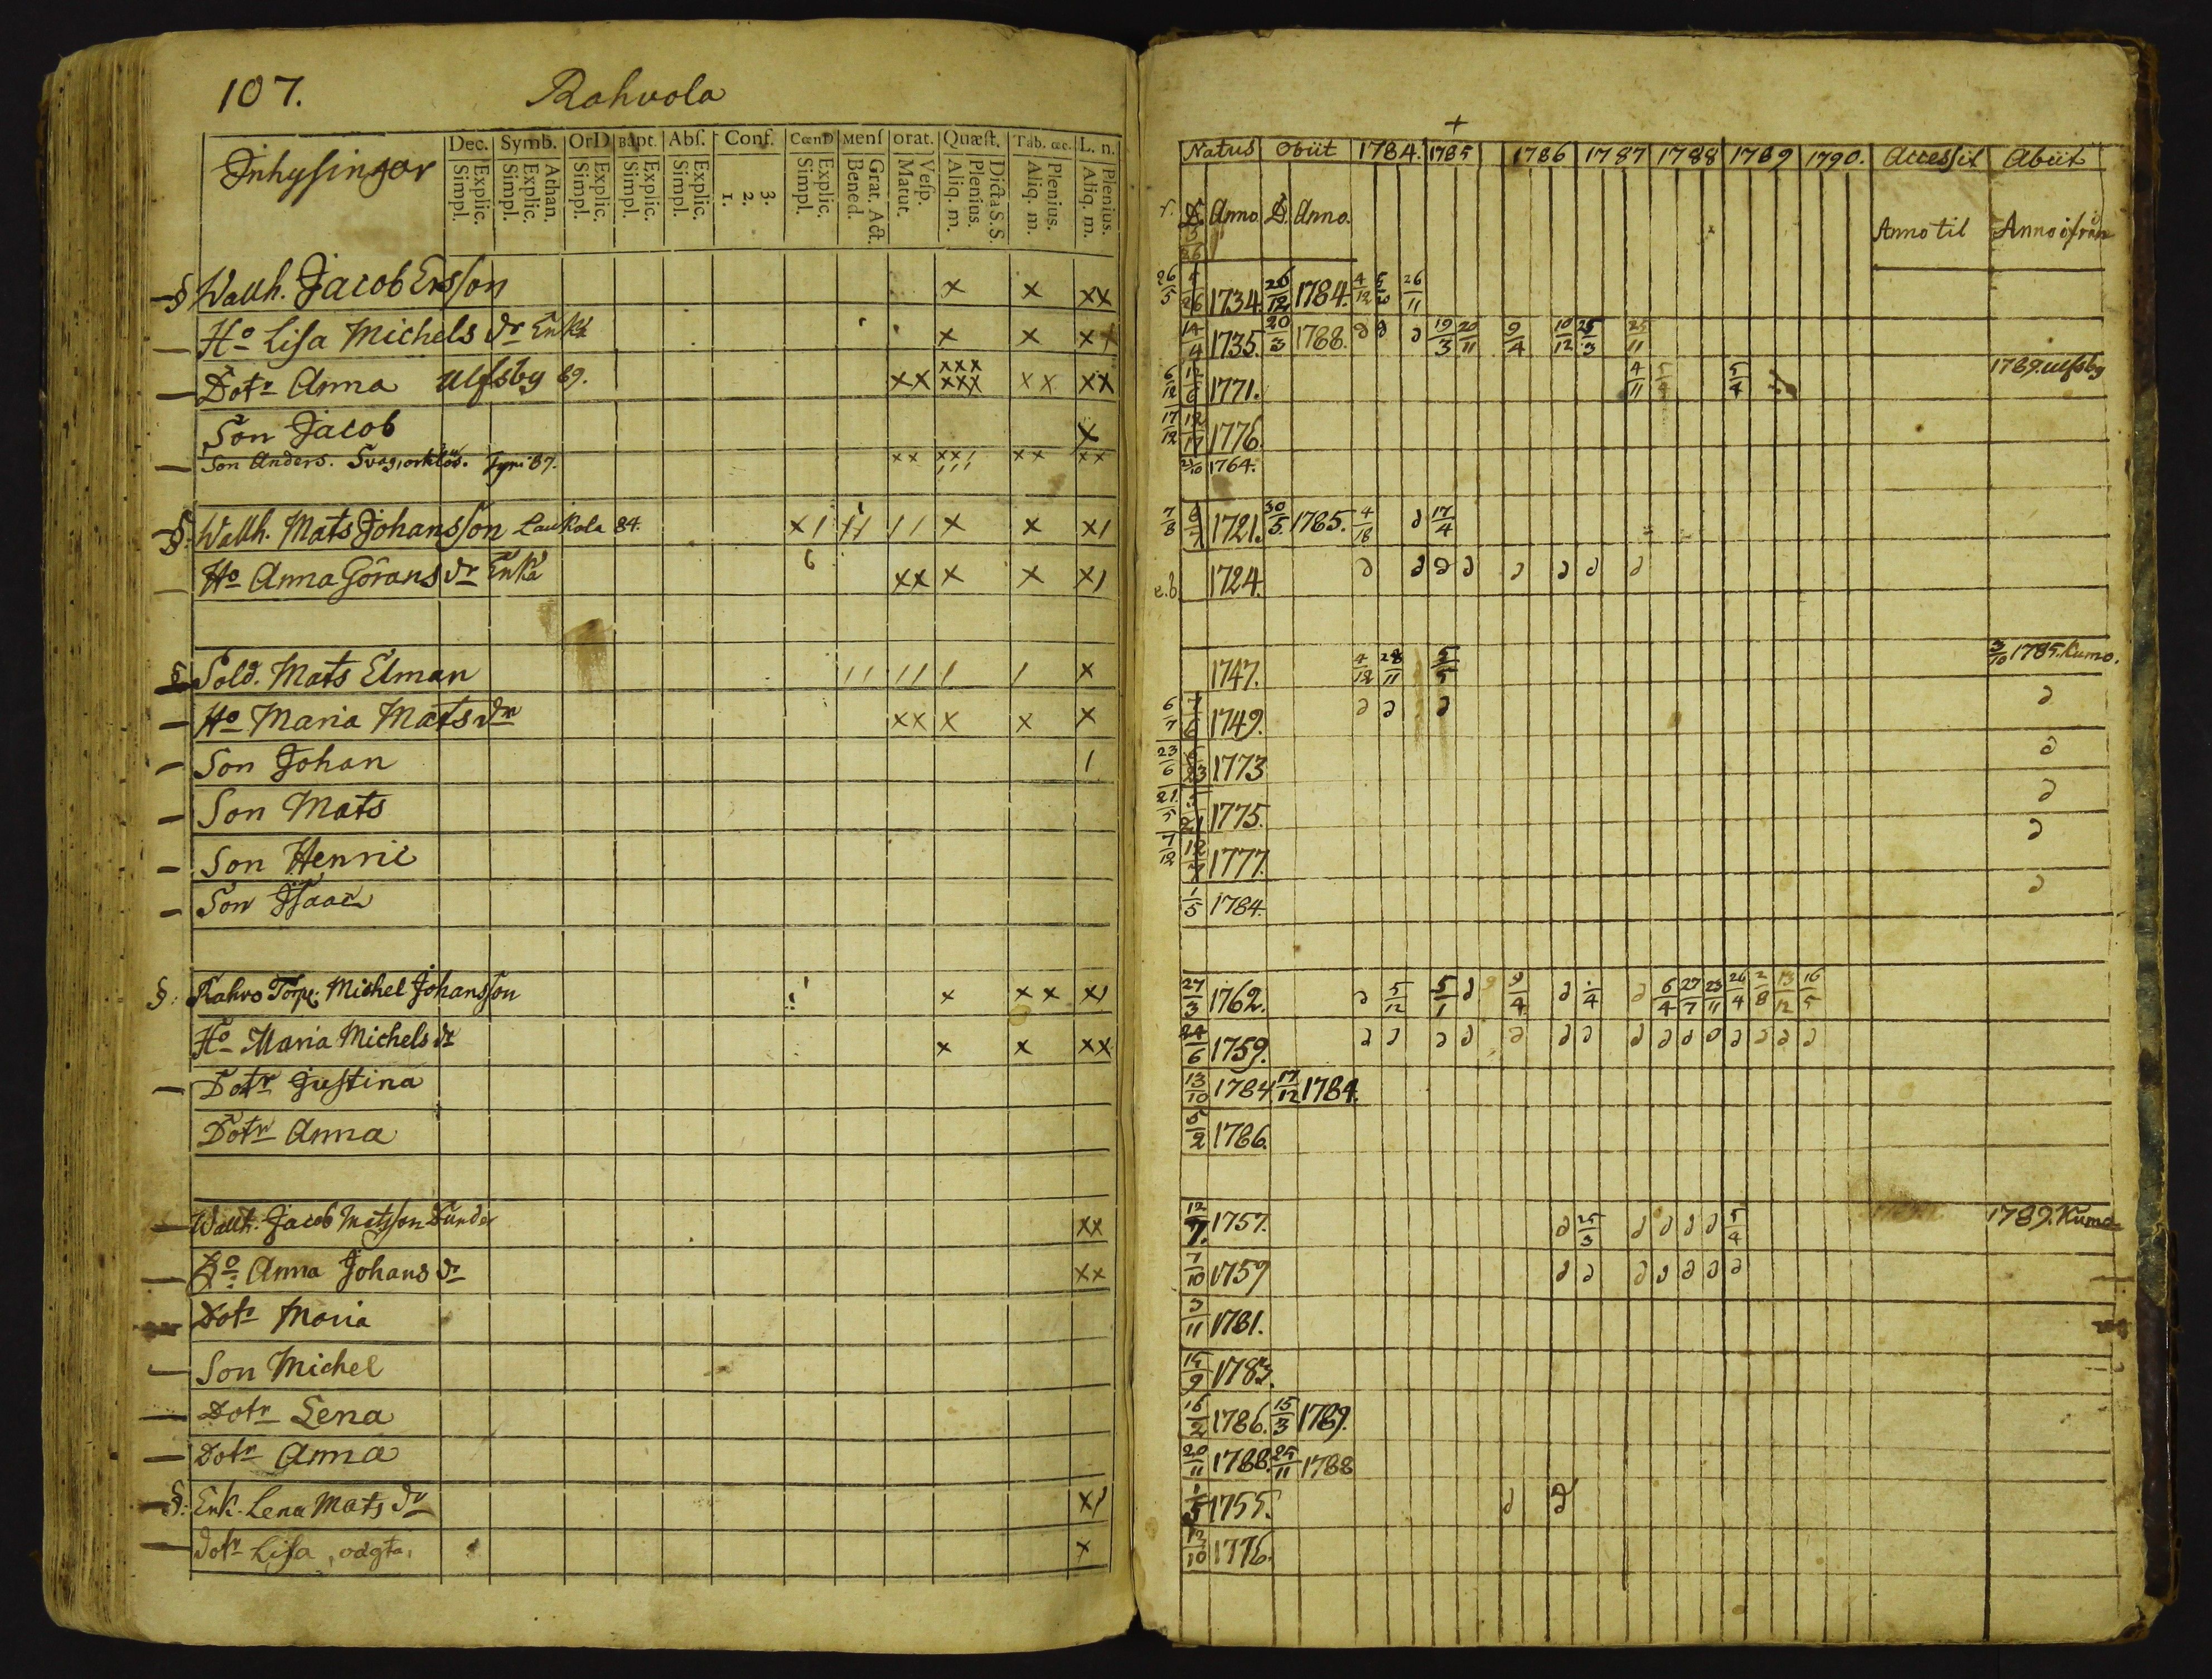 107. Rahvola
Inhysingar
Dec. Symb. OrD Bapt. Abs. Conf. CœnD Mens orat. Quæst. Tab. œc. L. n.
Explic. Simpl. Athan. Explic. Simpl. Explic. Simpl. Explic. Simpl. Explic. Simpl. 3. 2. 1. Explic. Simpl. Grat. Act. Bened. Vesp. Matut. Dicta S. S. Plenius. Aliq. m. Plenius. Aliq. m. Plenius. Aliq. m.
§ Wallh. Jacob Ersson x x xx
Ho Lisa Michels dr Enka x x xx
Dotr Anna Ulfsby 89. xx xxx xxx xx xx
Son Jacob x
Son Anders. 87. xx xx xx xx
§. Wallh. Mats Johansson Laukola 84. x x
Ho Anna Görans dr Enka xx x x
§ Sold. Mats Elman x
Ho Maria Matsdr xx x x x
Son Johan
Son Mats
Son Henric
Son Isaac
§: Rahvo Torp. Michel Johansson x xx
Ho Maria Michels dr x x xx
Dotr Justina
Dotr Anna
Wallh. Jacob Matsson Sunder xx
Ho Anna Johans dr xx
Dotr Maria
Son Michel
Dotr Lena
Dotr Anna
§: Enk. Lena Mats dr
dotr Lisa, x
+
Natus Obiit 1784. 1785 1786 1787 1788 1789 1790. Accessit Abiit
D. Anno. D. Anno. Anno til Anno ifrån
1734. 26/12 1784. 4/12 26/11
1735. 20/3 1788. 19/3 20/11 9/4 10/12 25/3 25/11
6/12 1771. 4/11 5/4 1789. Ulfsby
17/12 12/17 1776.
1764.
7/8 1721. 30/5 1785. 4/18 17/4
1724.
1747. 4/12 28/11 5/5 3/10 1785. Kumo.
6/7 7/6 1749.
23/6 6/23 1773
21/5 5/21 1775.
7/12 12/7 1777.
1/5 1784.
27/3 1762. 5/12 5/1 9/4 6/4 27/7 23/11 26/4 2/8 13/12 16/5
24/6 1759.
13/10 1784 17/12 1784.
5/2 1786.
12/7. 1757. 25/3 5/4 1789. Kumo
7/10 1759
3/11 1781.
15/9 1783.
16/2 1786. 15/3 1789.
20/11 1788. 25/11 1788
1/5 1755.
12/10 1776.